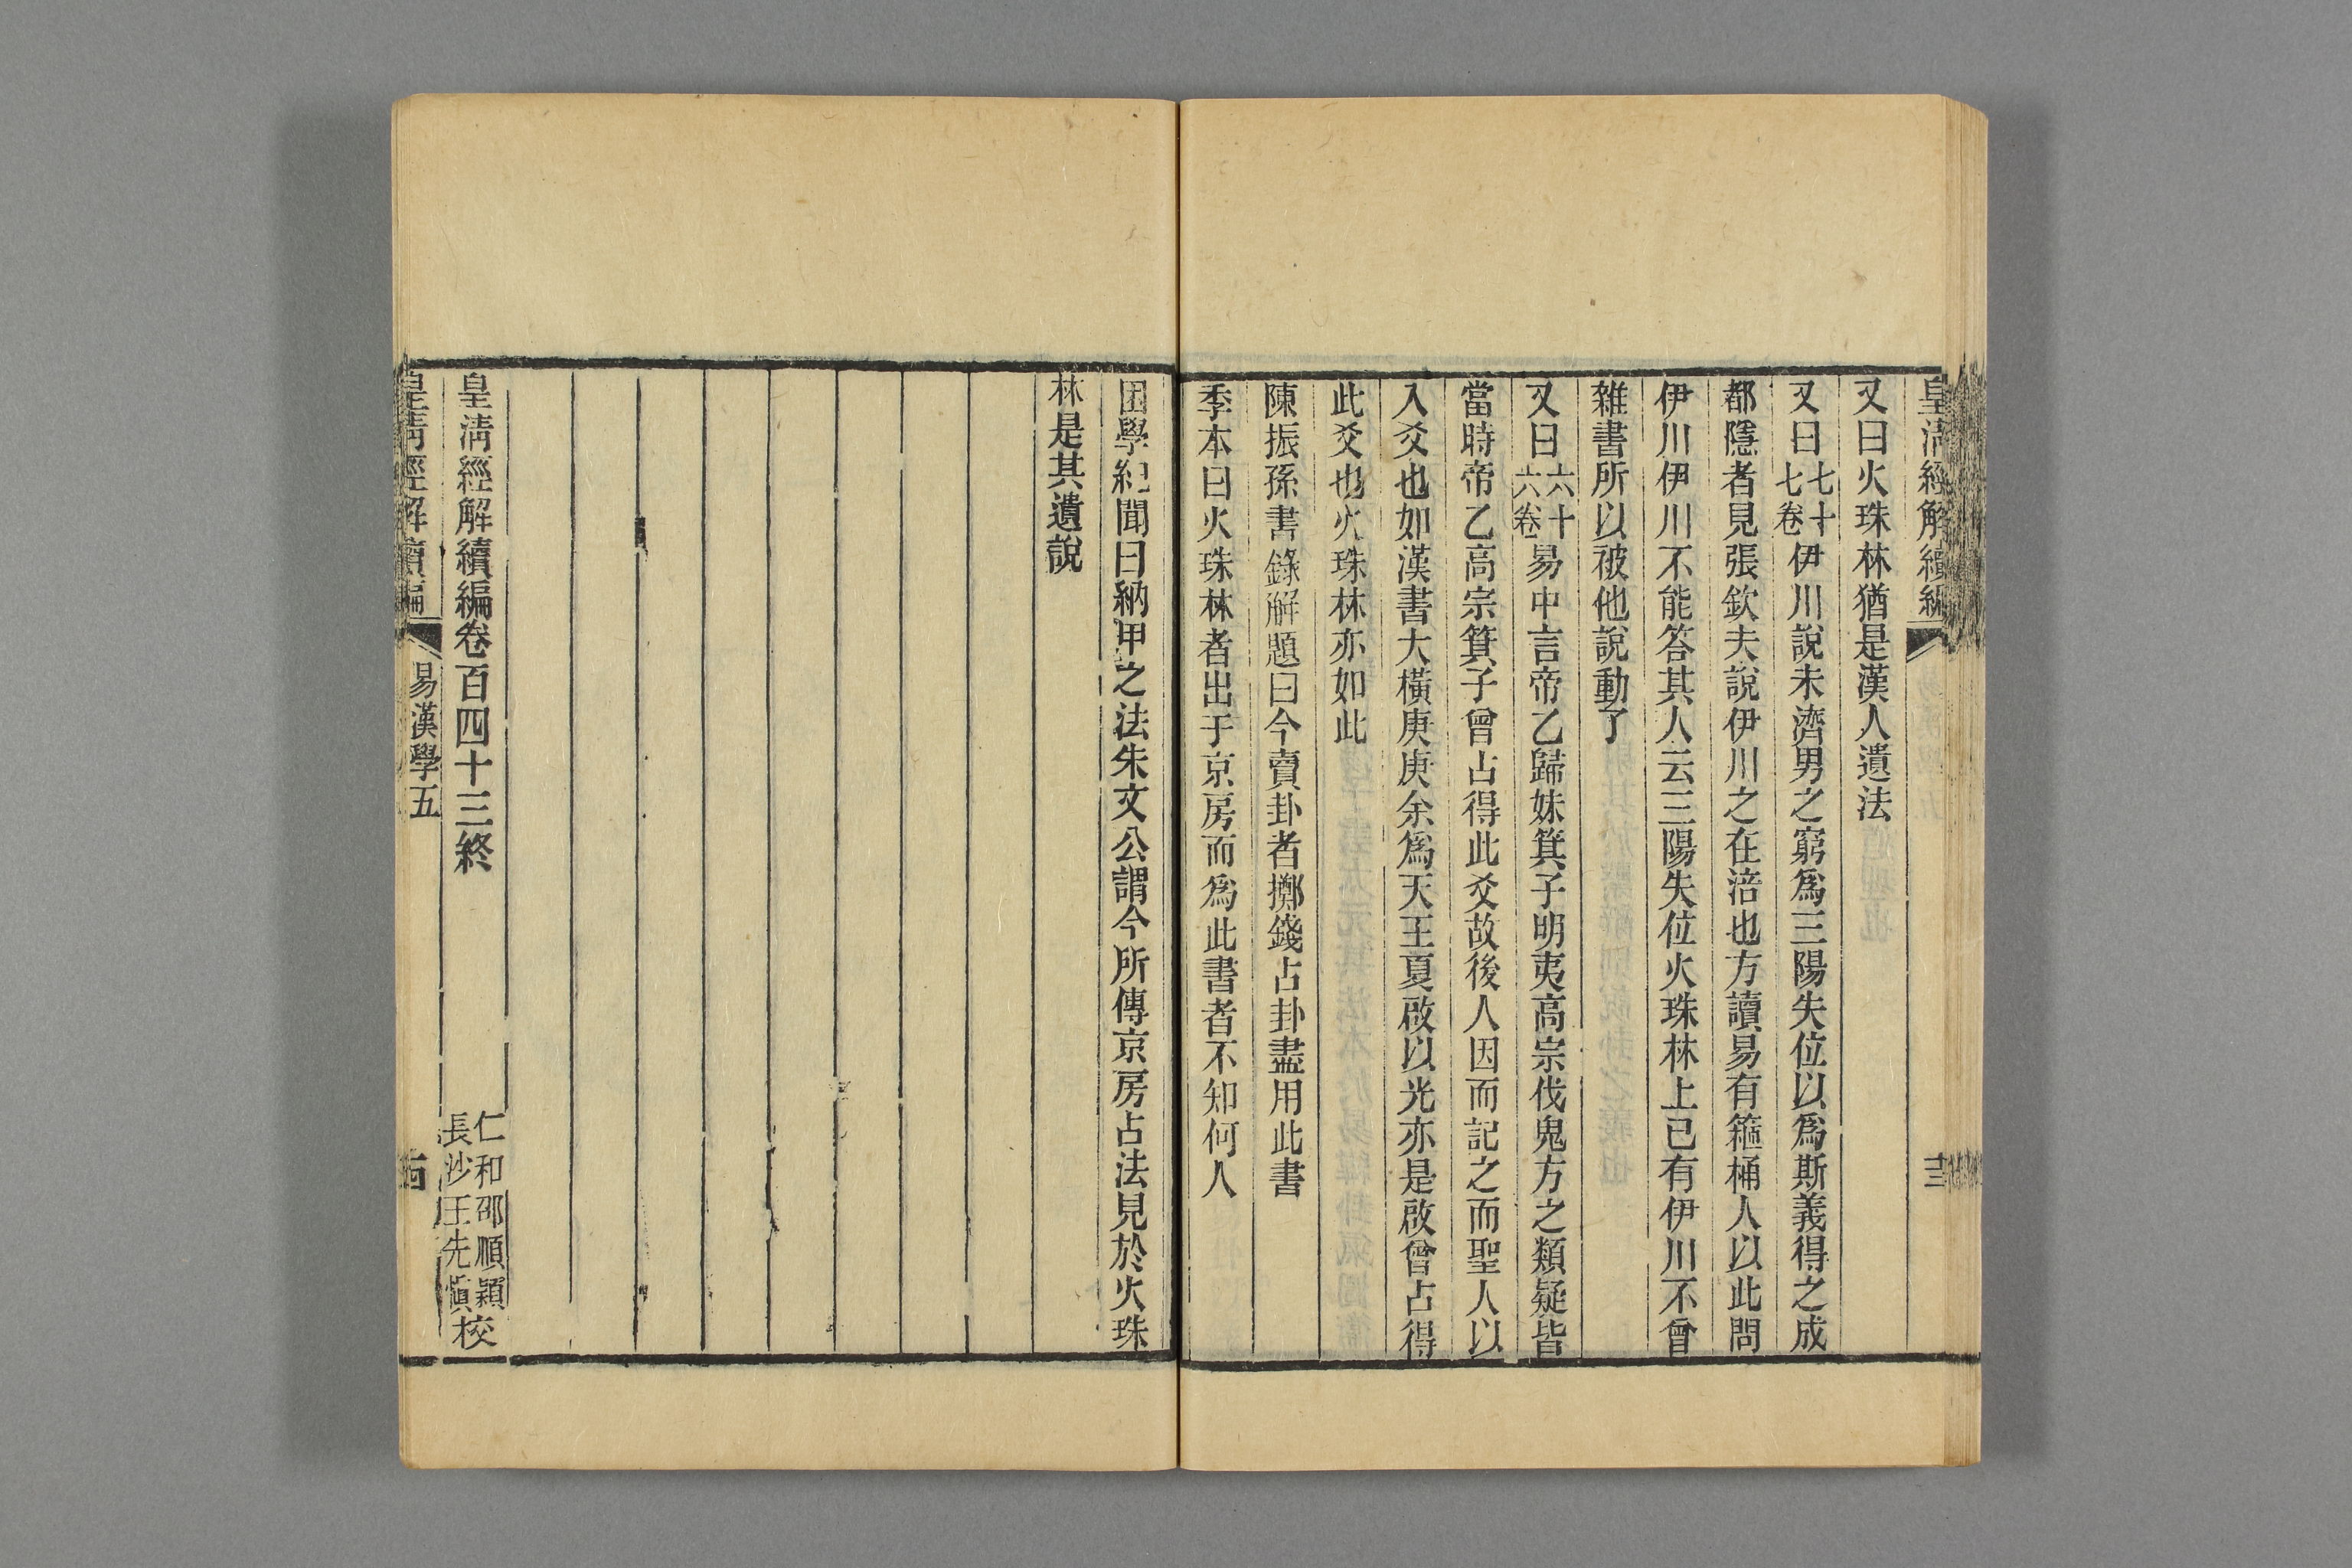 皇清經解續編
十三
又曰火珠林猶是漢人遺法
又曰七十七卷伊川說未濟男之窮爲三陽失位以爲斯義得之成
都隱者見張欽夫說伊川之在涪也方讀易有箍桶人以此問
伊川伊川不能答其人云三陽失位火珠林上已有伊川不曾
雜書所以被他說動了
又曰六十六卷易中言帝乙歸妹箕子明夷高宗伐鬼方之類疑皆
當時帝乙高宗箕子曾占得此爻故後人因而記之而聖人以
入爻也如漢書大橫庚庚余爲天王夏啟以光亦是啟曾占得
此爻也火珠林亦如此
陳振孫書錄解題曰今賣卦者擲錢占卦盡用此書
季本曰火珠林者出于京房而爲此書者不知何人
困學紀聞曰納甲之法朱文公謂今所傳京房占法見於火珠
林是其遺說
皇清經解續編卷百四十三終
仁和邵順穎
長沙王先愼校
皇清經解續編
易漢學五